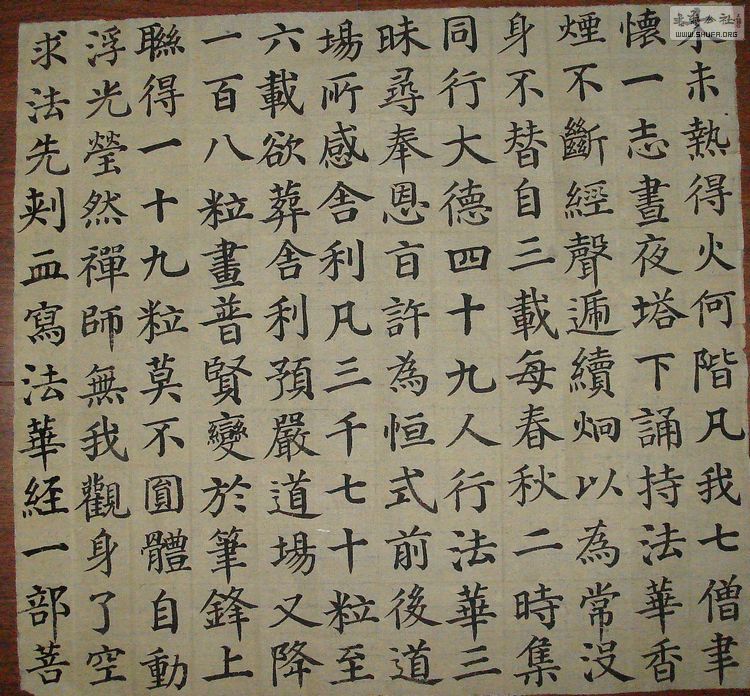 木未熱得火何階凡我七僧聿
懷一志晝夜塔下誦持法華香
煙不斷經聲遞續炯以為常沒
身不替自三載每春秋二時集
同行大德四十九人行法華三
昧尋奉恩旨許為恒式前後道
場所感舍利凡三千七十粒至
六載欲葬舍利預嚴道場又降
一百八粒畫普賢變於筆鋒上
聯得一十九粒莫不圓體自動
浮光瑩然禪師無我觀身了空
求法先刺血寫法華経一部菩
WWW.SHUFA.ORG